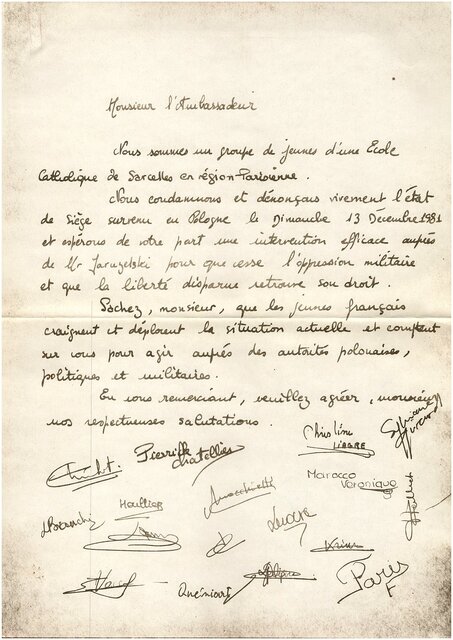 Monsieur l'Ambassadeur
Nous sommes un groupe de jeunes d'une Ecole
Catholique de Sarcelles en région-Parisienne.
Nous condamnons et dénonçons vivement l'état
de Siège survenu en Pologne le Dimanche 13 Décembre 1981
et espérons de votre part une intervention efficace auprès
de Mr Jaruzelski pour que cesse l'oppression militaire
et que la liberté disparue retrouve son droit.
Sachez, monsieur, que les jeunes français
craignent et déplorent la situation actuelle et comptent
sur vous pour agir auprès des autorités polonaises,
politiques et militaires.
En vous remerciant, veuillez agréer, monsieur
nos respectueuses salutations.
Pierrick Chatellier
Christine
LIEGRE
Marocco
Veronique
Houllier
Quéniart
Paris
F